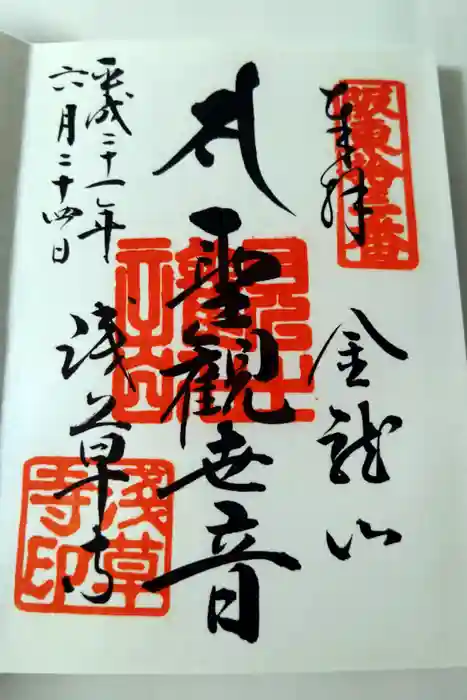 坂東拾三番
奉拝
金龍山
聖観世音
平成二十一年
六月二十四日
浅草寺
淺草
寺印